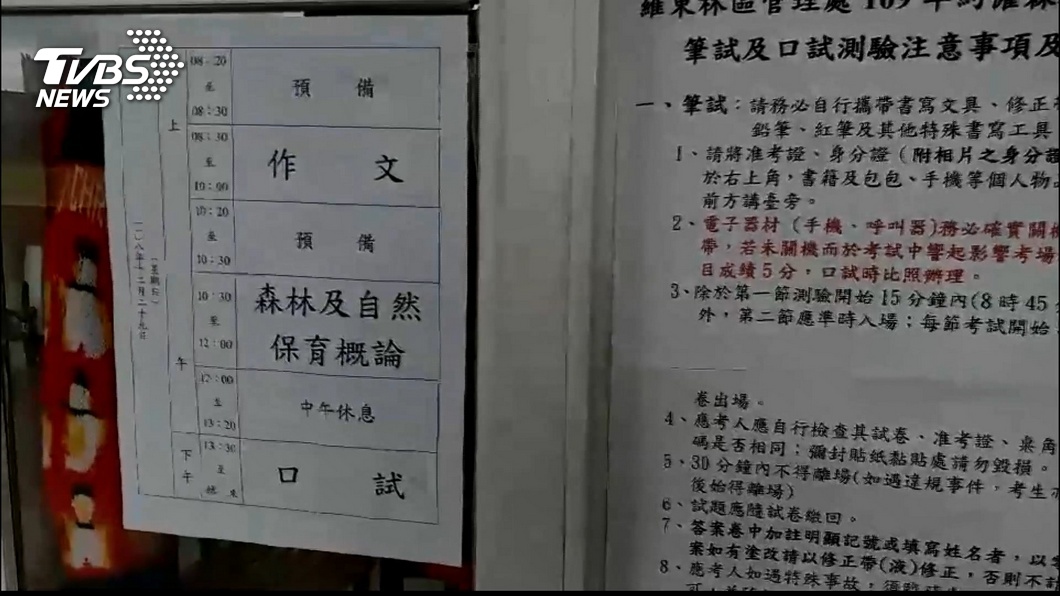 TVBS
NEWS
一〇八年十二月二十九日
(星期日)
上
午
08:20
至
08:30
預 備
08:30
至
10:00
作 文
10:20
至
10:30
預 備
10:30
至
12:00
森林及自然
保育概論
12:00
至
13:20
中午休息
下
午
13:30
至
口 試
羅東林區管理處109年約僱森
筆試及口試測驗注意事項及
一、筆試：請務必自行攜帶書寫文具、修正
鉛筆、紅筆及其他特殊書寫工具
1、請將准考證、身分證(附相片之身分證
於右上角，書籍及包包、手機等個人物
前方講臺旁。
2、電子器材 (手機、呼叫器)務必確實關機
帶，若未關機而於考試中響起影響考場
目成績5分，口試時比照辦理。
3、除於第一節測驗開始15分鐘內(8時45
外，第二節應準時入場；每節考試開始
卷出場。
4、應考人應自行檢查其試卷、准考證、桌角
碼是否相同；彌封貼紙黏貼處請勿毀損。
5、30分鐘內不得離場(如遇違規事件，考生
後始得離場)
6、試題應隨試卷繳回。
7、答案卷中加註明顯記號或填寫姓名者，以
案如有塗改請以修正帶(液)修正，否則不
8、應考人如遇特殊事故，